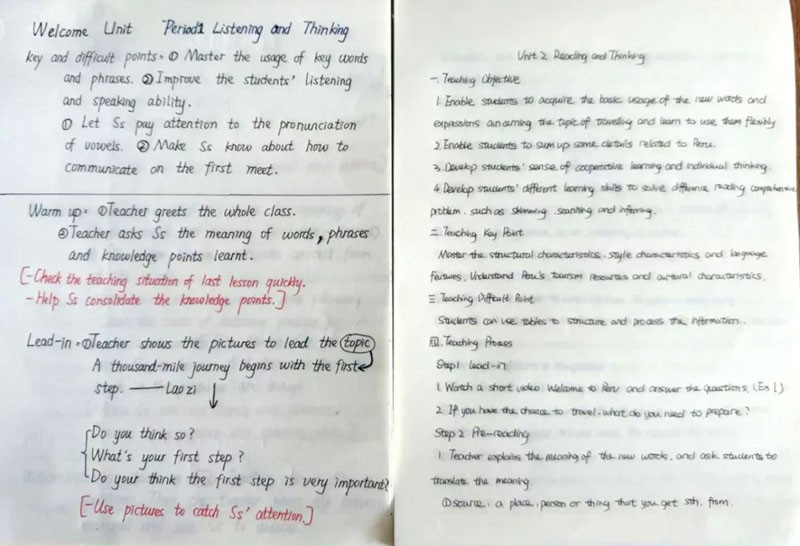 Welcome Unit Period1 Listening and Thinking
key and difficult points: ① Master the usage of key words
and phrases. ② Improve the students' listening
and speaking ability.
① Let Ss pay attention to the pronunciation
of vowels. ② Make Ss know about how to
communicate on the first meet.
Warm up: ①Teacher greets the whole class.
②Teacher asks Ss the meaning of words, phrases
and knowledge points learnt.
[-Check the teaching situation of last lesson quickly.
-Help Ss consolidate the knowledge points.]
Lead-in: ①Teacher shows the pictures to lead the topic
A thousand-mile journey begins with the first
step. —— Lao zi
Do you think so?
What's your first step?
Do your think the first step is very important?
[-Use pictures to catch Ss' attention.]
Unit 2 Reading and Thinking
一. Teaching Objective
1. Enable students to acquire the basic usage of the new words and
expressions concerning the topic of travelling and learn to use them flexibly
2. Enable students to sum up some details related to Peru.
3. Develop students' sense of cooperative learning and individual thinking.
4. Develop students' different learning skills to solve difference reading comprehensive
problem. such as skimming, scanning and inferring.
二. Teaching Key Point
Master the structural characteristics, style characteristics and language
features. Understand Peru's tourism resources and cultural characteristics.
三. Teaching Difficult Point
Students can use tables to structure and process the information.
四. Teaching Process
Step1 Lead-in
1. Watch a short video Welcome to Peru and answer the questions. (Ex 1)
2. If you have the chance to travel, what do you need to prepare?
Step 2 Pre-reading
1. Teacher explains the meaning of the new words, and ask students to
translate the meaning.
①source: a place, person or thing that you get sth. from.